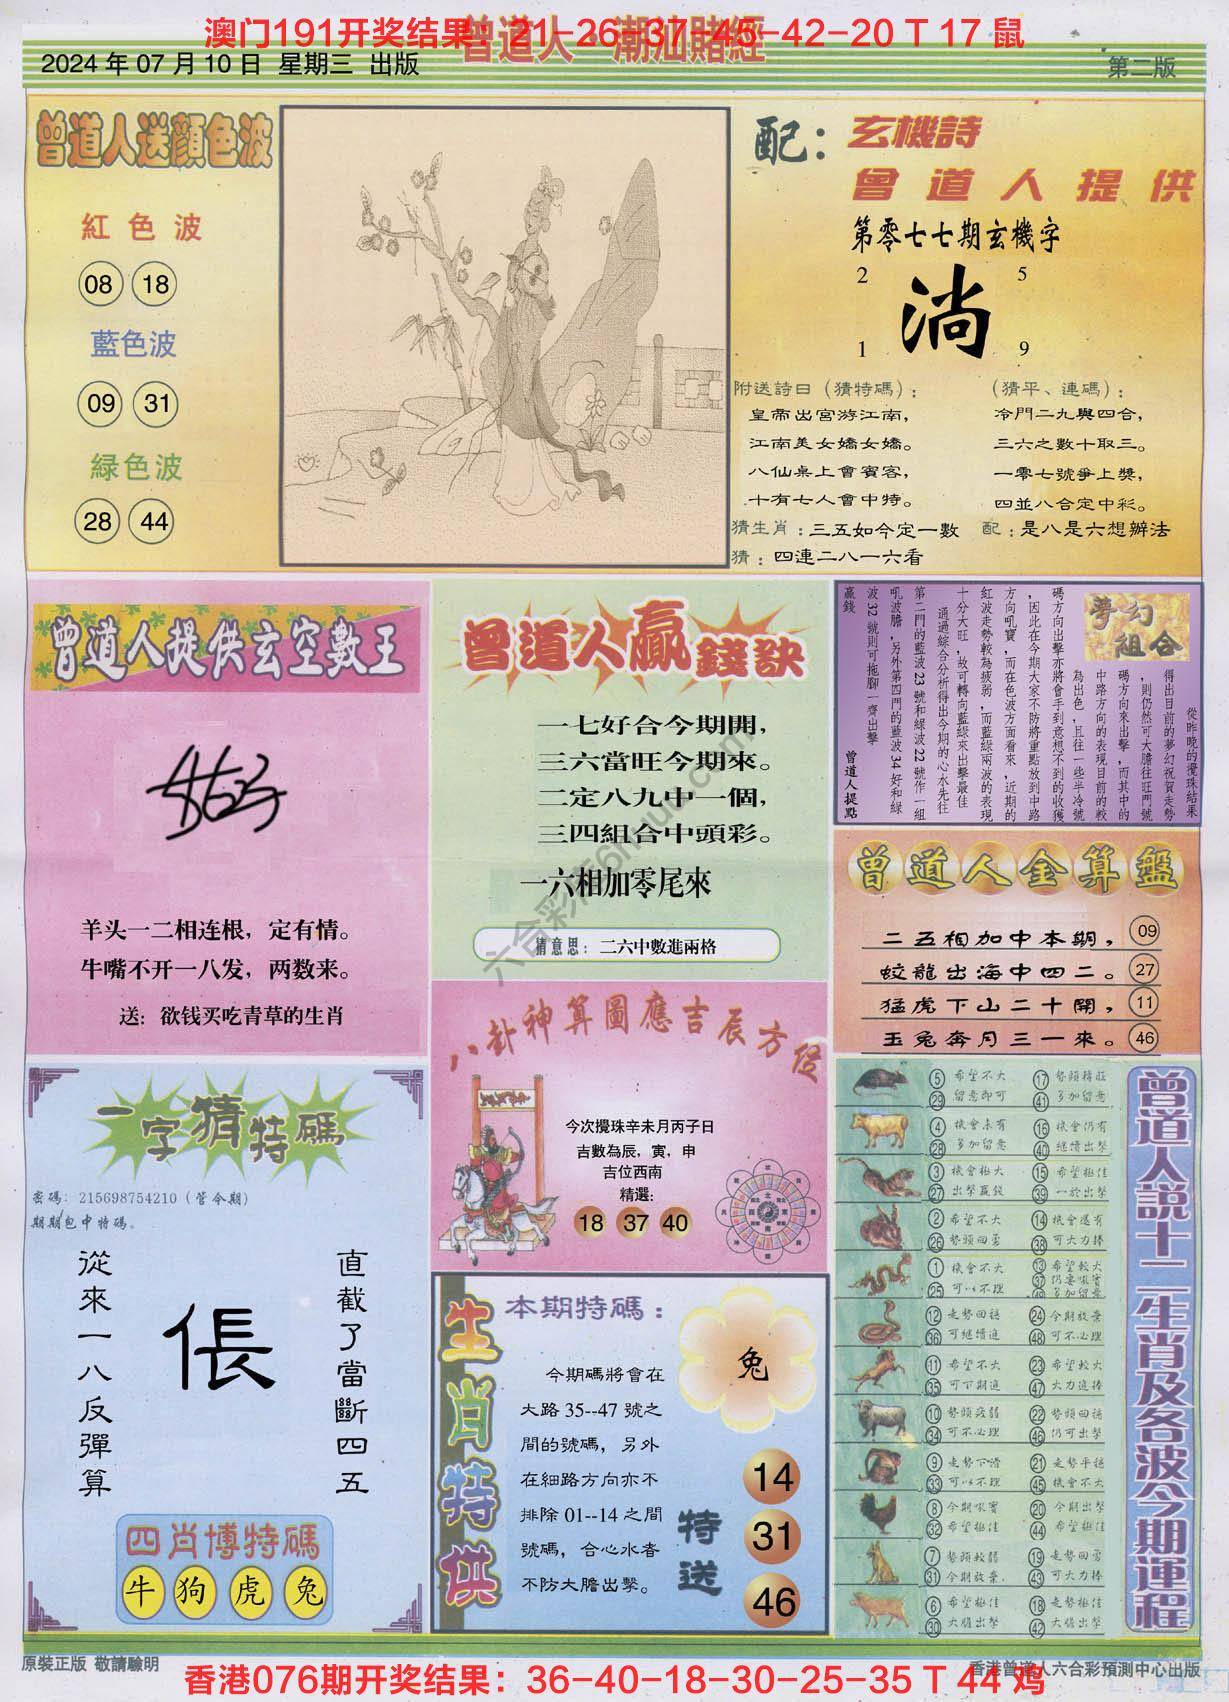 澳门191开奖结果：21-26-37-45-42-20 T 17 鼠
曾道人·潮汕賭經
2024 年 07 月 10 日 星期三 出版
第二版
曾道人送顏色波
紅色波
08 18
藍色波
09 31
緑色波
28 44
配：玄機詩
曾道人提供
第零七七期玄機字
2 5
淌
1 9
附送詩曰（猜特碼）：
皇帝出宮游江南，
江南美女嬌女嬌。
八仙桌上會賓客，
十有七人會中特。
（猜平、連碼）：
冷門二九與四合，
三六之數十取三。
一零七號爭上獎，
四並八合定中彩。
猜生肖：三五如今定一數 配：是八是六想辦法
猜：四連二八一六看
曾道人提供玄空數王
羊头一二相连根，定有情。
牛嘴不开一八发，两数来。
送：欲钱买吃青草的生肖
曾道人贏錢訣
一七好合今期開，
三六當旺今期來。
二定八九中一個，
三四組合中頭彩。
一六相加零尾來
猜意思：二六中數進兩格
夢幻組合
從昨晚的攪珠結果
得出目前的夢幻祝賀走勢
，則仍然可大膽往旺門號
碼方向來出擊，而其中的
中路方向的表現目前的較
為出色，且往一些半冷號
碼方向出擊亦將會手到意想不到的收獲
，因此在今期大家不防將重點放到中路
方向吼寶，而在色波方面看來，近期的
紅波走勢較為疲弱，而藍綠兩波的表現
十分大旺，故可轉向藍綠來出擊最佳
通過綜合分析得出今期的心水先往
第二門的藍波23號和綠波22號作一組
吼波膽，另外第四門的藍波34好和綠
波32號則可拖腳一齊出擊
贏錢
曾道人提點
曾道人金算盤
二五相加中本期， 09
蛟龍出海中四二。 27
猛虎下山二十開， 11
玉兔奔月三一來。 46
八卦神算圖應吉辰方位
今次攪珠辛未月丙子日
吉數為辰，寅，申
吉位西南
精選：
18 37 40
一字猜特碼
密碼：215698754210（管今期）
期期包中特碼。
直截了當斷四五
倀
從來一八反彈算
四肖博特碼
牛 狗 虎 兔
生肖特供
本期特碼：
兔
今期碼將會在
大路 35--47 號之
間的號碼，另外
在細路方向亦不
排除 01--14 之間
號碼，合心水者
不防大膽出擊。
特送
14
31
46
曾道人說十二生肖及各波今期運程
5 希望不大 17 勢頭精旺
29 留意即可 41 多加留意
4 機會未有 16 機會仍有
28 多加留意 40 繼續出擊
3 機會極大 15 希望極佳
27 出擊贏錢 39 一於出擊
2 希望不大 14 機會還有
26 勢頭回勇 38 可大力捧
1 機會不大 13 希望較大
25 可以不理 37 仍要吼實
49 多加留意
12 走勢回穩 24 今期放棄
36 可繼續追 48 可不必理
11 希望不大 23 希望較大
35 可下期追 47 大力追捧
10 勢頭疲弱 22 勢頭回穩
34 可不必理 46 仍可出擊
9 走勢下滑 21 走勢平穩
33 可以不理 45 機會不大
8 今期吼實 20 今期出擊
32 希望極佳 44 希望極佳
7 勢頭較弱 19 走勢回勇
31 今期放棄， 43 可大力捧
6 希望極佳 18 走勢極佳
30 大膽出擊 42 大膽出擊
原裝正版 敬請驗明
香港曾道人六合彩預測中心出版
香港076期开奖结果：36-40-18-30-25-35 T 44 鸡